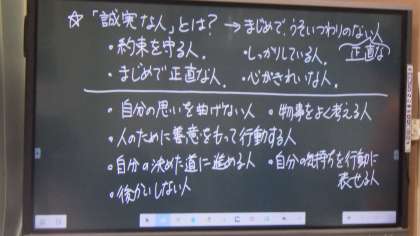 ☆「誠実な人」とは？→まじめで、うそいつわりのない人
正直な
・約束を守る人。
・しっかりしている人。
・まじめで正直な人。
・心がきれいな人。
・自分の思いを曲げない人
・物事をよく考える人
・人のために善意をもって行動する人
・自分の決めた道に進める人
・自分の気持ちを行動に
表せる人
・後かいしない人